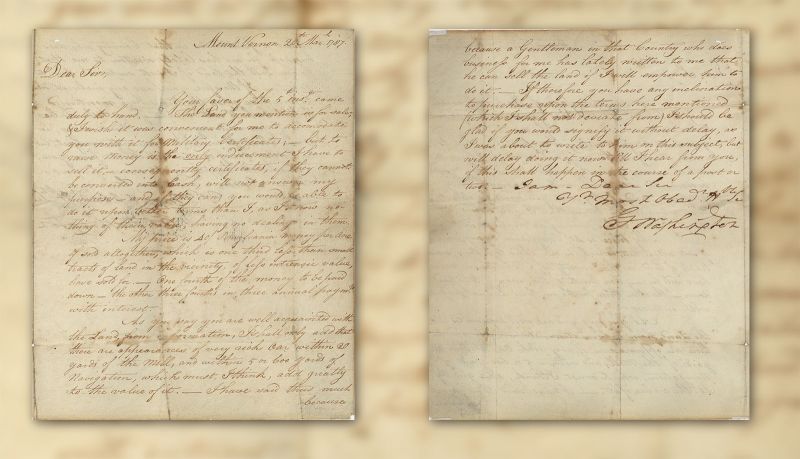 Mount Vernon 28th Mar. 1787.
Dear Sir,
Your favor of the 5th inst. came
duly to hand. The Land you mention is for sale,
& I wish it was convenient for me to accomodate
you with it for Military Certificates; — but to
raise money is the only inducement I have to
sell it — consequently certificates, if they cannot
be converted into Cash, will not answer my
purposes — and if they can, you would be able to
do it upon better terms than I, as I know no-
thing of their value; having no dealings in them.
My price is 40/ money per acre
of sold altogether, which is one third less than small
tracts of land in the vicinity of less intrinsic value,
have sold for. — One fourth of the money to be paid
down — the other three fourths in three annual paymts
with interest.
As you say you are well acquainted with
the Land, from information, I shall only add that
there are appearances of very rich Oar within 20
yards of the Mill, and within 5 or 600 yards of
Navigation, which must I think, add greatly
to the value of it. — I have said thus much
because
because a Gentleman in that Country who does
business for me has lately written to me that
he can sell the land if I will empower him to
do it. — If therefore you have any inclination
to purchase upon the terms here mentioned,
(which I shall not deviate from) I should be
glad if you would signify it without delay, as
I was about to write to him on this subject, but
will delay doing it now till I hear from you,
if this shall happen in the course of a post or
two. — I am — Dear Sir
Yr Most Obed H Se
G Washington